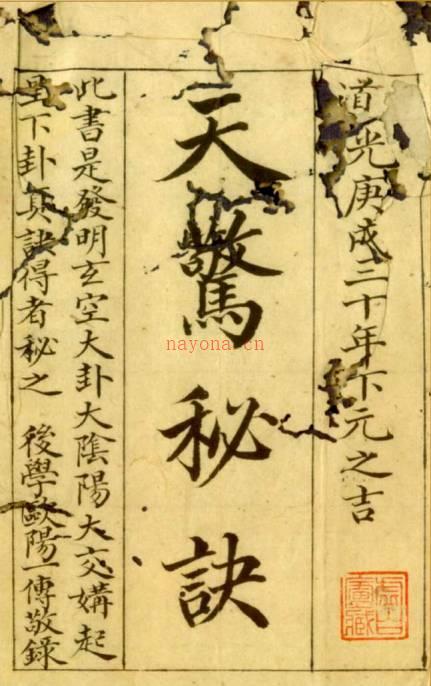 道光庚戌三十年下元之吉
天驚秘訣
此書是發明玄空大卦大陰陽大交媾起
星下卦真訣得者秘之 後學歐陽一傳敬錄
nayona.cn